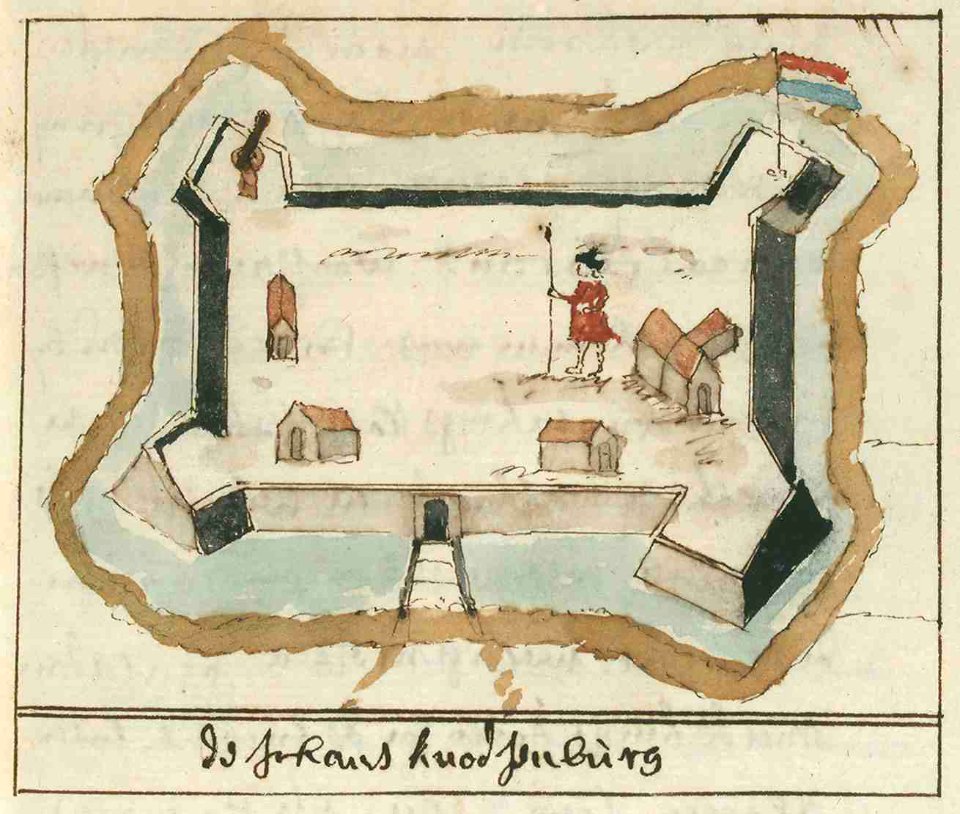 de schans knodsenburg